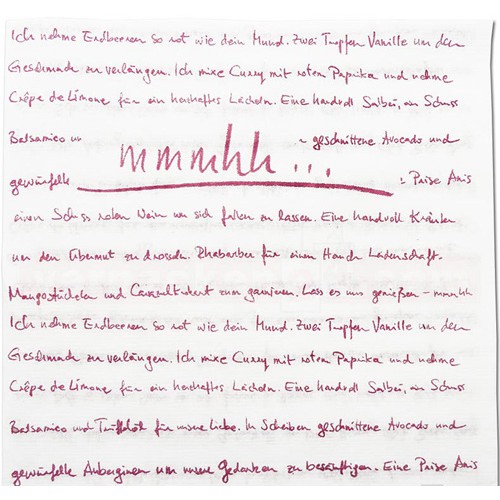 Ich nehme Erdbeeren so rot wie dein Mund. Zwei Tropfen Vanille um den
Geschmack zu verlängen. Ich mixe Curry mit rotem Paprika und nehme
Crêpe de Limone für ein herzhaftes Lächeln. Eine handvoll Salbei, ein Schuss
Balsamico un geschnittene Avocado und
mmmhh...
gewürfelle Prise Anis
einen Schuss roten Wein um sich fallen zu lassen. Eine handvoll Kräuter
um den Übermut zu drosseln. Rhabarber für einen Hauch Leidenschaft.
Mangostückchen und zum garnieren. Lass es uns genießen - mmmhh
Ich nehme Erdbeeren so rot wie dein Mund. Zwei Tropfen Vanille um den
Geschmack zu verlängen. Ich mixe Curry mit rotem Paprika und nehme
Crêpe de Limone für ein herzhaftes Lächeln. Eine handvoll Salbei, ein Schuss
Balsamico und Trüffelöl für unsere Liebe. In Scheiben geschnittene Avocado und
gewürfelle Auberginen um unsere Gedanken zu besänftigen. Eine Prise Anis